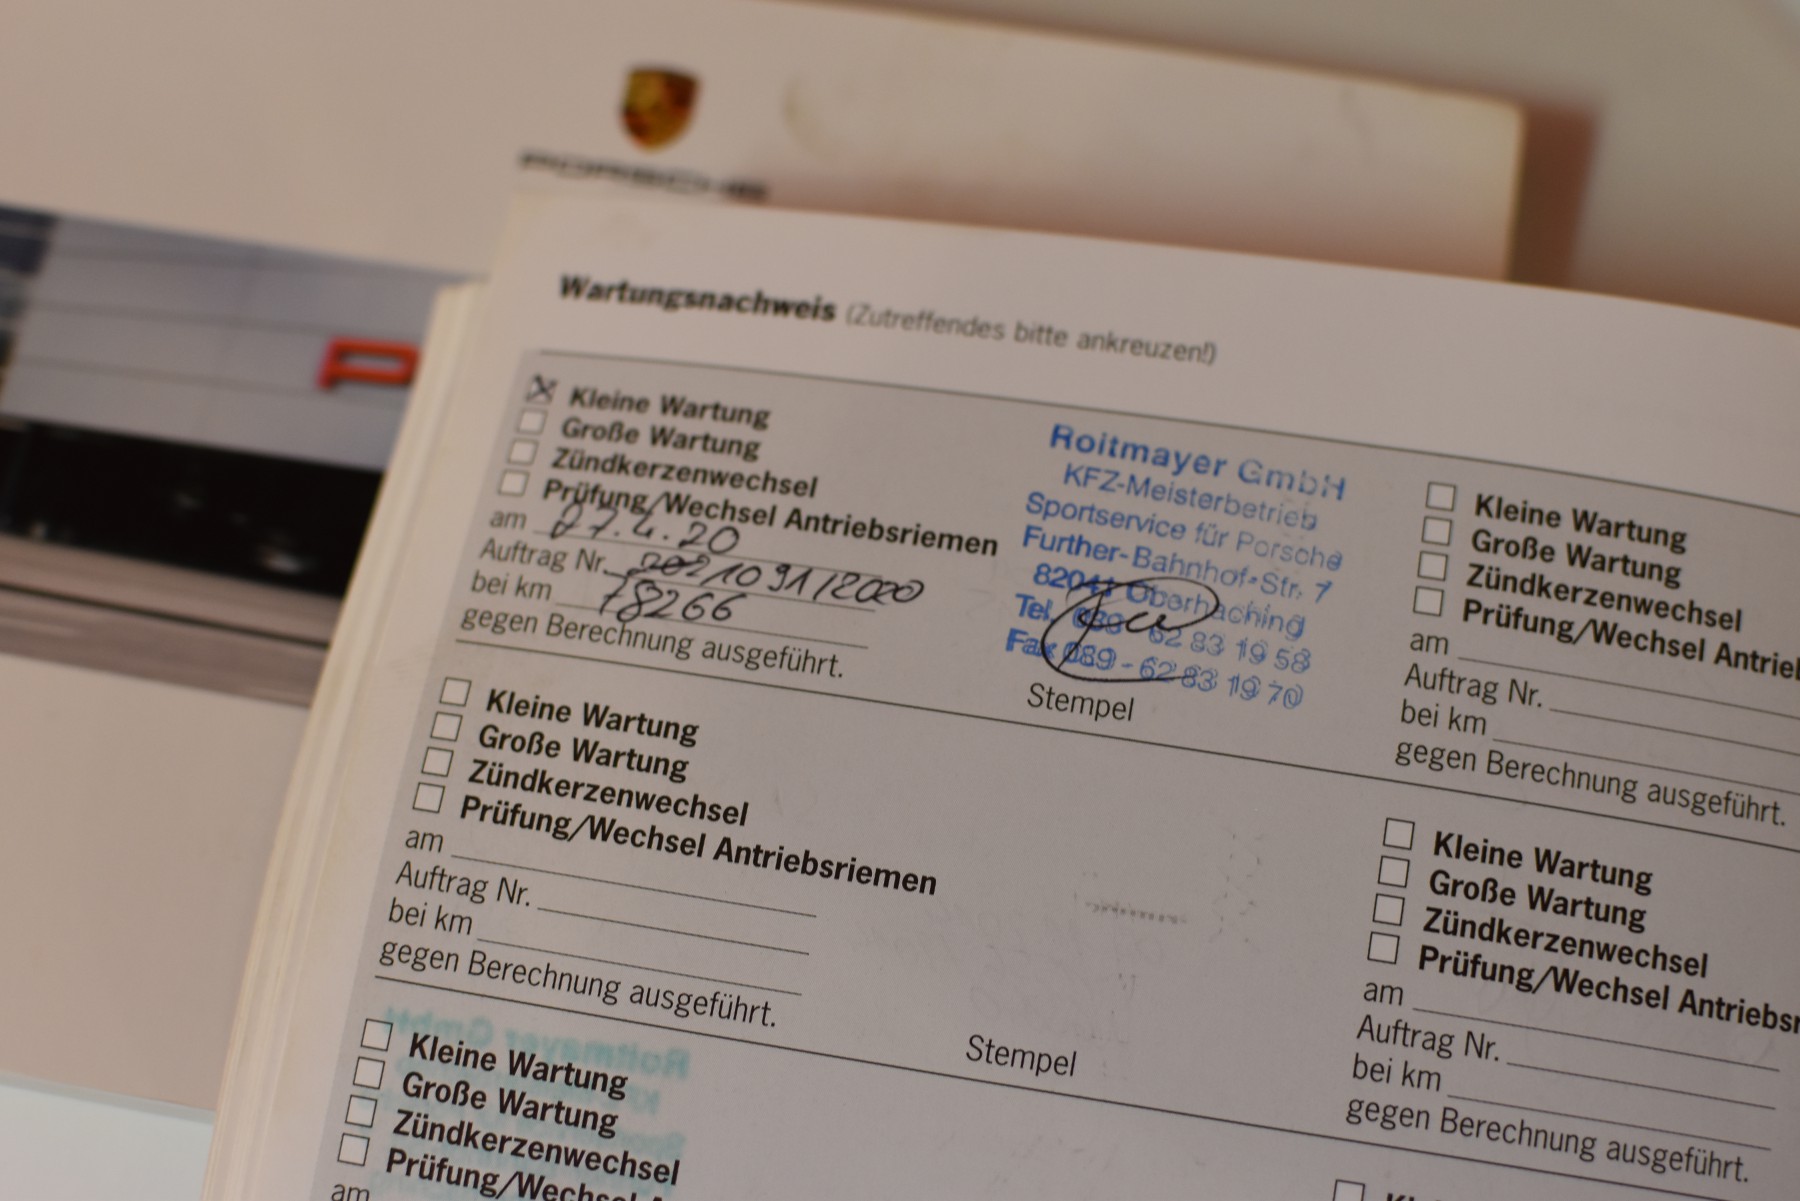 PORSCHE
P
Wartungsnachweis (Zutreffendes bitte ankreuzen!)
Kleine Wartung
Große Wartung
Zündkerzenwechsel
Prüfung/Wechsel Antriebsriemen
am 27.4.20
Auftrag Nr. 202/1091/2020
bei km 78266
gegen Berechnung ausgeführt.
Roitmayer GmbH
KFZ-Meisterbetrieb
Sportservice für Porsche
Further-Bahnhof-Str. 7
82041 Oberhaching
Tel. 089 - 62 83 19 58
Fax 089 - 62 83 19 70
Stempel
Kleine Wartung
Große Wartung
Zündkerzenwechsel
Prüfung/Wechsel Antrie
am
Auftrag Nr.
bei km
gegen Berechnung ausgeführt.
Kleine Wartung
Große Wartung
Zündkerzenwechsel
Prüfung/Wechsel Antriebsriemen
am
Auftrag Nr.
bei km
gegen Berechnung ausgeführt.
Stempel
Kleine Wartung
Große Wartung
Zündkerzenwechsel
Prüfung/Wechsel Antriebsr
am
Auftrag Nr.
bei km
gegen Berechnung ausgeführt.
Roitmayer GmbH
Kleine Wartung
Große Wartung
Zündkerzenwechsel
Prüfung/Wechsel
am